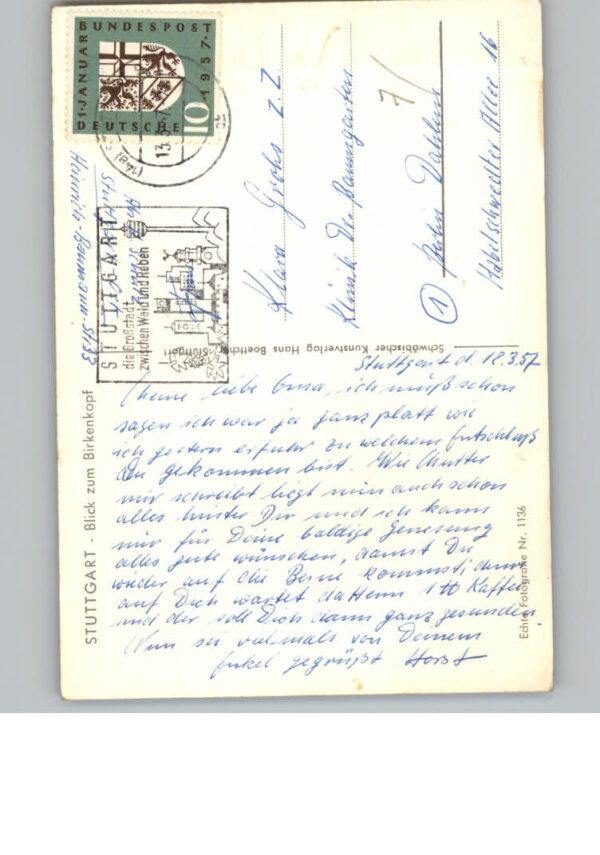 BUNDESPOST
1·JANUAR
1957
10
DEUTSCHE
STUTTGART
die Großstadt
zwischen Wald und Reben
Heinrich-Baumann-Str 33
Klara Grohs z Z
Klinik Dr. Baumgarten
7/
① Berlin Dahlem
Habelschwerdter Allee 16
Schwäbischer Kunstverlag Hans Boettcher, Stuttgart
STUTTGART - Blick zum Birkenkopf
Echte Fotografie Nr. 1136
Stuttgart d. 18.3.57
Meine liebe Oma, ich muß schon
sagen ich war ja ganz platt wie
ich gestern erfuhr zu welchem Entschluß
Du gekommen bist. Wie Mutter
mir schreibt liegt nun auch schon
alles hinter Dir und ich kann
nur für Deine baldige Genesung
alles gute wünschen, damit Du
wieder auf die Beine kommst; denn
auf Dich wartet daheim 1 Kaffee
und der soll Dich dann ganz gesunden.
Nun sei vielmals von Deinem
Enkel gegrüßt Horst